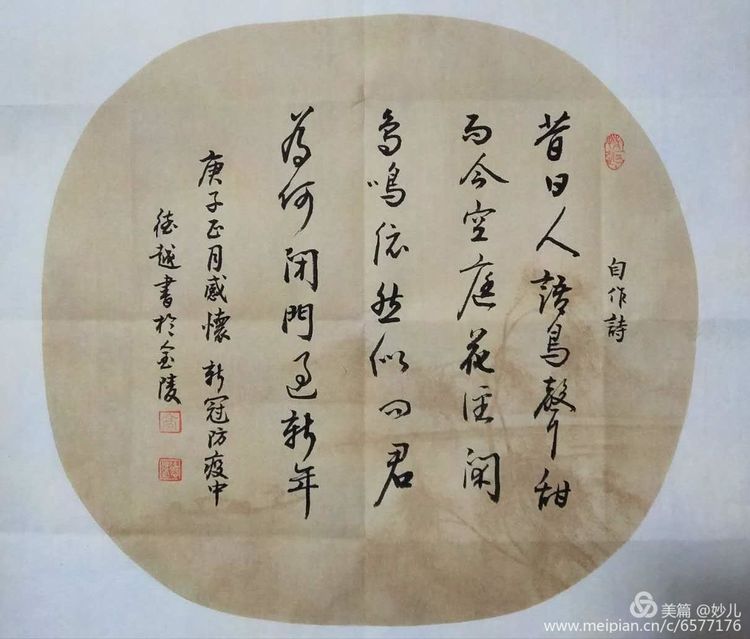 自作詩
昔日人語鳥聲甜
而今空庭花徑閑
鳥鳴依然似問君
為何閉門過新年
庚子正月感懷 新冠防疫中
德越書於金陵
美篇 @妙儿
www.meipian.cn/c/6577176